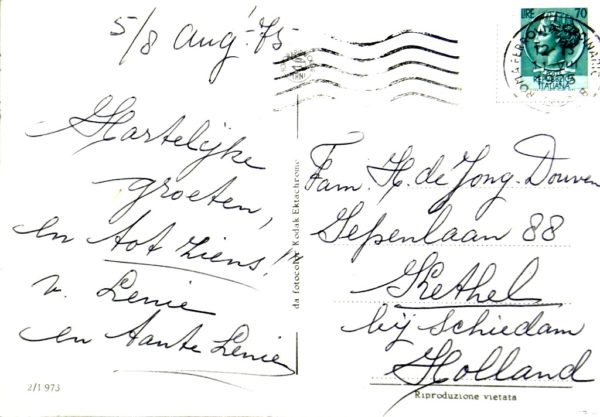 5/8 aug '75
Hartelijke
groeten,
en tot ziens!!
v. Lenie
en tante Lenie
2/1973
da fotocolor Kodak Ektachrome
LIRE 70
ITALIANA
ROMA FERROVIA
Fam. H. de Jong-Douven
Iepenlaan 88
Kethel
bij Schiedam
Holland
Riproduzione vietata